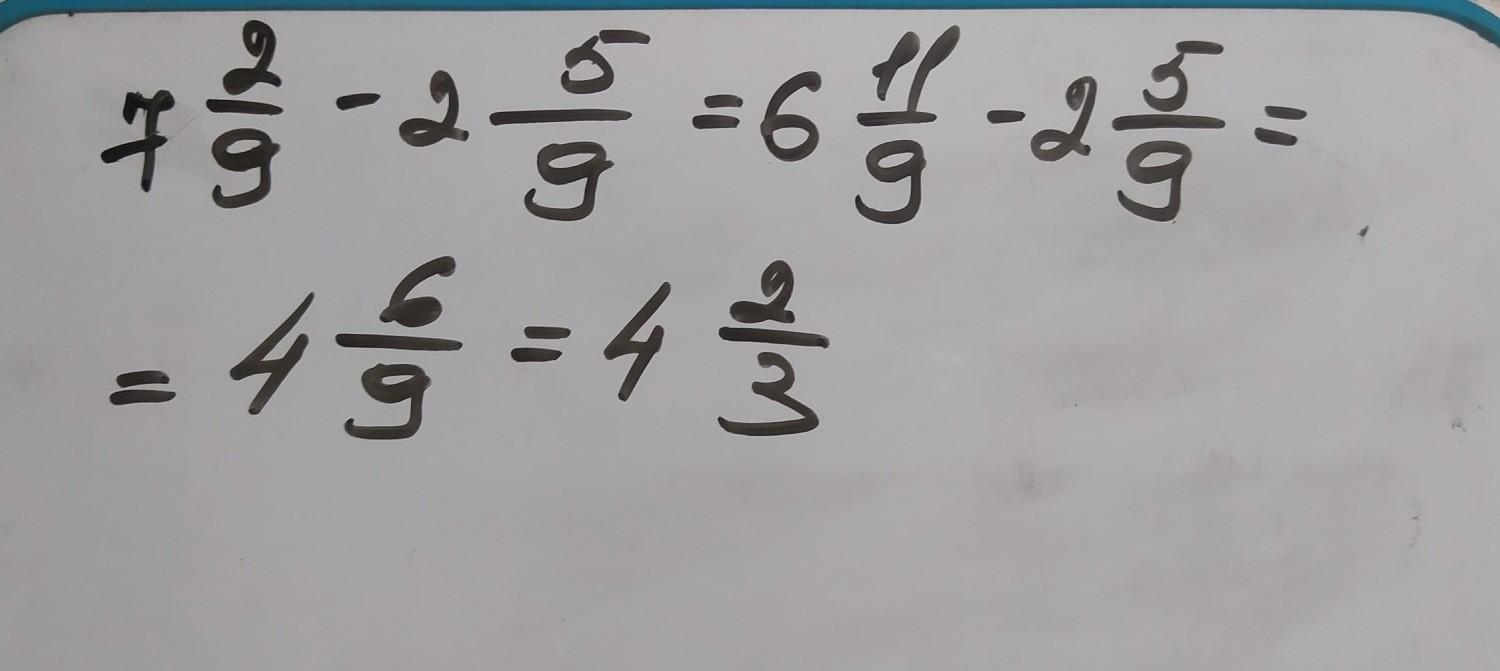 7 2/9 - 2 5/9 = 6 11/9 - 2 5/9 =
= 4 6/9 = 4 2/3